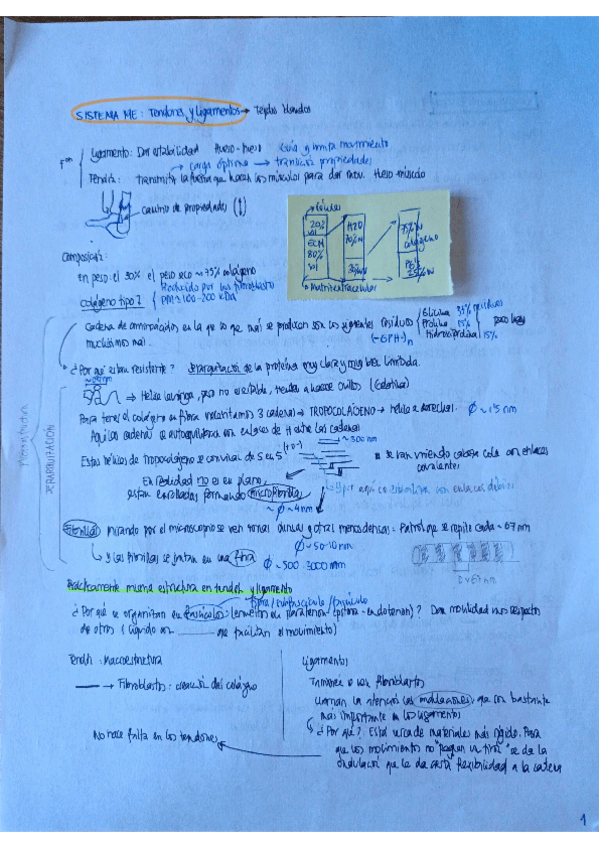 SISTEMA ME: Tendones y Ligamentos → tejidos blandos
Ligamento: Dar estabilidad Hueso-Hueso Guía y limita movimiento
Fⁿ
→ carga óptima → transmitir propiedades
Tendón: transmitir la fuerza que hacen los músculos para dar mov. Hueso-músculo
cambio de propiedades (!)
Células
20% sol
ECM 80% sol
H2O 70%
30%
75% colágeno
25%
Matriz extracelular
Composición:
En peso: el 30% el peso seco ~ 75% colágeno
Producido por los fibroblastos
Colágeno tipo I
PM ≈ 100-200 kDa
Cadena de aminoácidos en la que lo que más se producen son los siguientes residuos
Glicina 33% residuos
Prolina 15%
Hidroxiprolina 15%
muchísimo más.
(-GPH-)n
¿Por qué es tan resistente? Jerarquización de la proteína muy clara y muy bien
→ Hélice levógira, pero no es estable, tiende a hacerse ovillos (Gelatina)
Para tener el colágeno en fibra necesitamos 3 cadenas → TROPOCOLÁGENO → hélice a derechas. Ø ~ 1'5 nm
Aquí las cadenas se autoequilibran con enlaces de H entre las cadenas
~ 300 nm
Estas hélices de tropocolágeno se 5 en 5
se van uniendo cabeza cola con enlaces
covalentes
En realidad no es en plano,
están enrolladas formando microfibrilla
→ Y por aquí con enlaces débiles
~ Ø ~ 4 nm
Fibrilla mirando por el microscopio se ven zonas densas y otras menos densas = Patrón que se repite cada ~ 67 nm
Ø ~ 50-10 nm
↳ Y las fibrillas se juntan en una fibra
Ø ~ 500-3000 nm
D = 67 nm
JERARQUIZACIÓN
Prácticamente misma estructura en tendón y ligamento
fibra/subfascículo/fascículo
¿Por qué se organizan en fascículos (envueltos en paratenon-epitenon-endotenon)? Dan movilidad unos respecto
de otros (líquido con ______ que facilitan el movimiento)
Tendón: Macroestructura
Ligamentos
—→ Fibroblastos: creación del colágeno
También se ven fibroblastos
Llaman la atención las ondulaciones, que son bastante
más importante en los ligamentos
↳ ¿Por qué?: Están cerca de materiales más rígidos. Para
que los movimientos no peguen un tirón se da la
ondulación que le da cierta flexibilidad a la cadena
No hace falta en los tendones
1